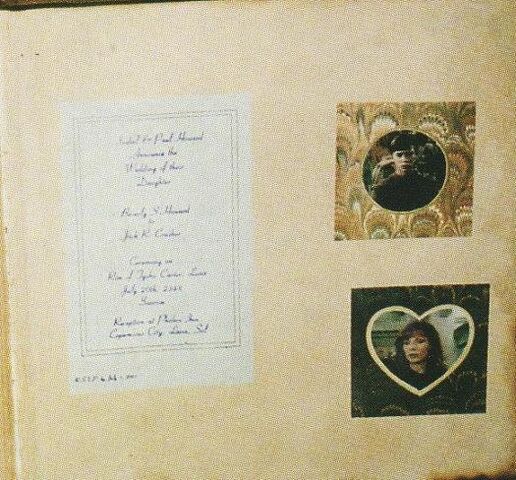 Isabel & Paul Howard
Announce the
Wedding of their
Daughter
Beverly S. Howard
to
Jack R. Crusher
Ceremony on
Rim of Tycho Crater, Luna
July 20th, 2348
Reception at
Copernicus City, Luna, Sol
R.S.V.P. by July